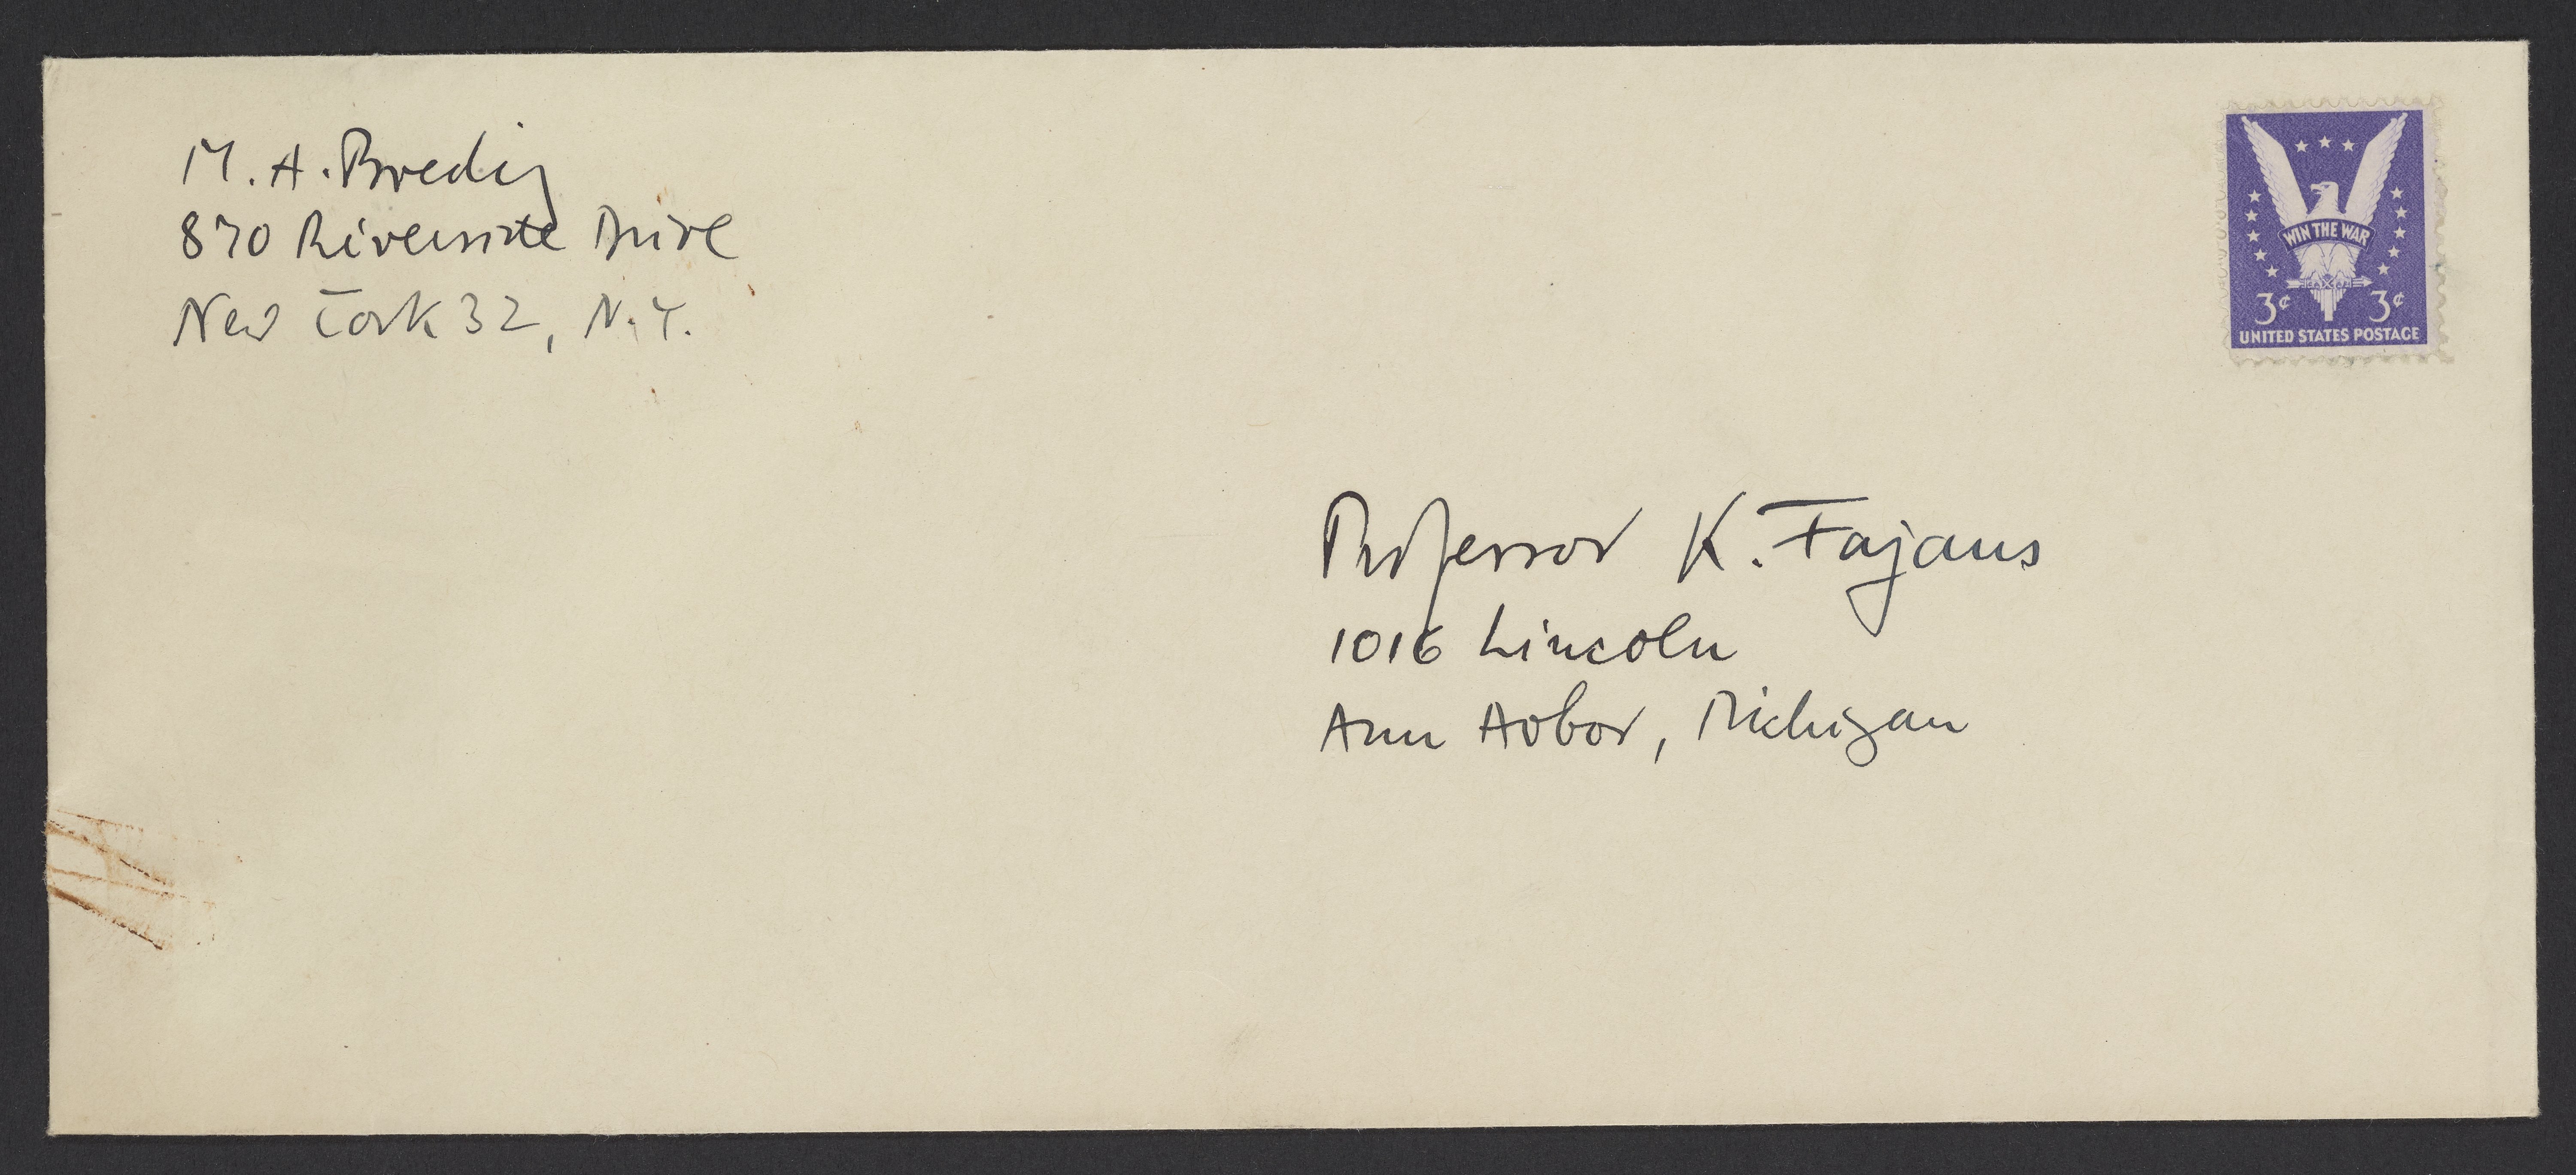 M. A. Bredig
870 Riverside Drive
New York 32, N.Y.
WIN THE WAR
3¢ 3¢
UNITED STATES POSTAGE
Professor K. Fajans
1016 Lincoln
Ann Arbor, Michigan